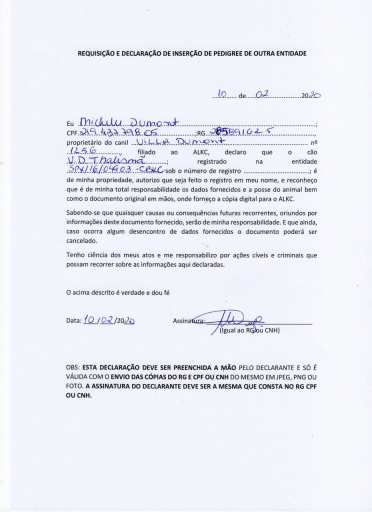 REQUISIÇÃO E DECLARAÇÃO DE INSERÇÃO DE PEDIGREE DE OUTRA ENTIDADE
10 de 02 2020
Eu Michele Dumont
CPF.: RG
proprietário do canil VILLA DUMONT nº
1256, filiado ao ALKC, declaro que o cão
V.D. Thalismã; registrado na entidade
sob o número de registro; é
de minha propriedade, autorizo que seja feito o registro em meu nome, e reconheço
que é de minha total responsabilidade os dados fornecidos e a posse do animal bem
como o documento original em mãos, onde forneço a cópia digital para o ALKC.
Sabendo-se que quaisquer causas ou consequências futuras recorrentes, oriundos por
informações deste documento fornecido, serão de minha responsabilidade. E que ainda,
caso ocorra algum desencontro de dados fornecidos o documento poderá ser
cancelado.
Tenho ciência dos meus atos e me responsabilizo por ações cíveis e criminais que
possam recorrer sobre as informações aqui declaradas.
O acima descrito é verdade e dou fé
Data: 10/02/2020 Assinatura:
(Igual ao RG ou CNH)
OBS: ESTA DECLARAÇÃO DEVE SER PREENCHIDA A MÃO PELO DECLARANTE E SÓ É
VÁLIDA COM O ENVIO DAS CÓPIAS DO RG E CPF OU CNH DO MESMO EM JPEG, PNG OU
FOTO. A ASSINATURA DO DECLARANTE DEVE SER A MESMA QUE CONSTA NO RG CPF
OU CNH.